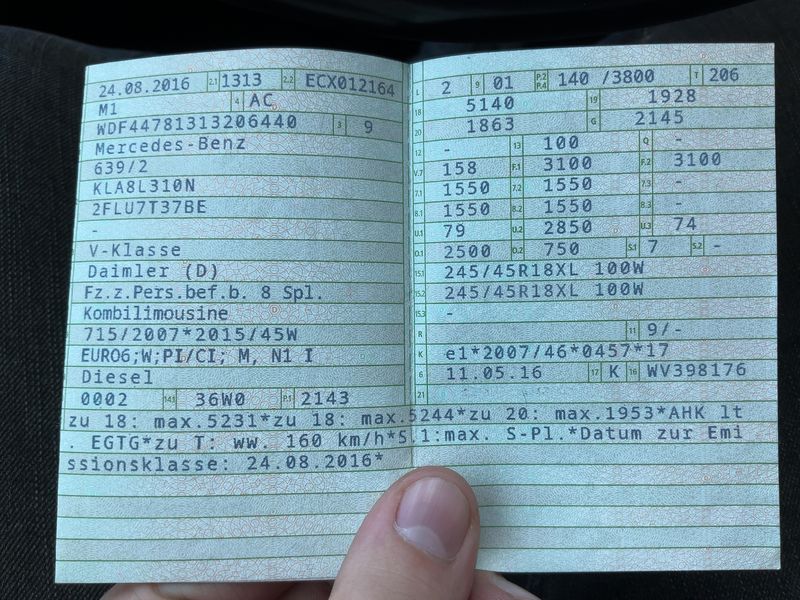 24.08.2016 2.1 1313 2.2 ECX012164
M1 4 AC
WDF44781313206440 3 9
Mercedes-Benz
639/2
KLA8L310N
2FLU7T37BE
-
V-Klasse
Daimler (D)
Fz.z.Pers.bef.b. 8 Spl.
Kombilimousine
715/2007*2015/45W
EURO6;W;PI/CI; M, N1 I
Diesel
0002 14.1 36W0 P.1 2143
L 2 9 01 P.2 P.4 140 /3800 T 206
18 5140 19 1928
20 1863 G 2145
12 - 13 100 Q -
V.7 158 F.1 3100 F.2 3100
7.1 1550 7.2 1550 7.3 -
8.1 1550 8.2 1550 8.3 -
U.1 79 U.2 2850 U.3 74
O.1 2500 O.2 750 S.1 7 S.2 -
15.1 245/45R18XL 100W
15.2 245/45R18XL 100W
15.3 -
R 11 9/-
K e1*2007/46*0457*17
6 11.05.16 17 K 16 WV398176
21
zu 18: max.5231*zu 18: max.5244*zu 20: max.1953*AHK lt
. EGTG*zu T: ww. 160 km/h*S.1:max. S-Pl.*Datum zur Emi
ssionsklasse: 24.08.2016*